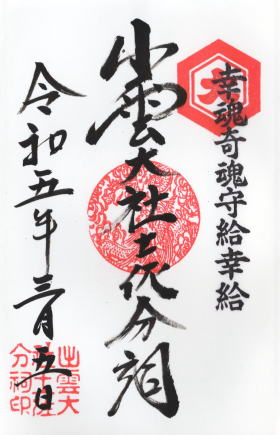 幸魂奇魂守給幸給
大
出雲大社土佐分祠
令和五年三月五日
出雲大
社土佐
分祠印